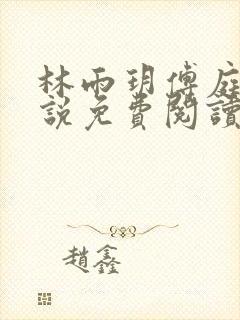 林雨玥傅庭
説免費閱讀
趙鑫